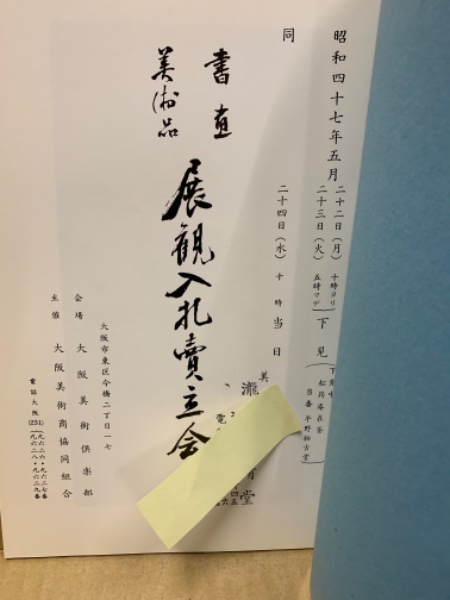 昭和四十七年五月
二十二日（月）十時ヨリ
二十三日（火）五時マデ
下見
同
二十四日（水）十時当日
書画
美術品
展観入札賣立会
大阪市東区今橋二丁目一七
会場 大阪美術倶楽部
主催 大阪美術商協同組合
電話大阪(231)
九六二六・九六二七番
九六二八・九六二九番